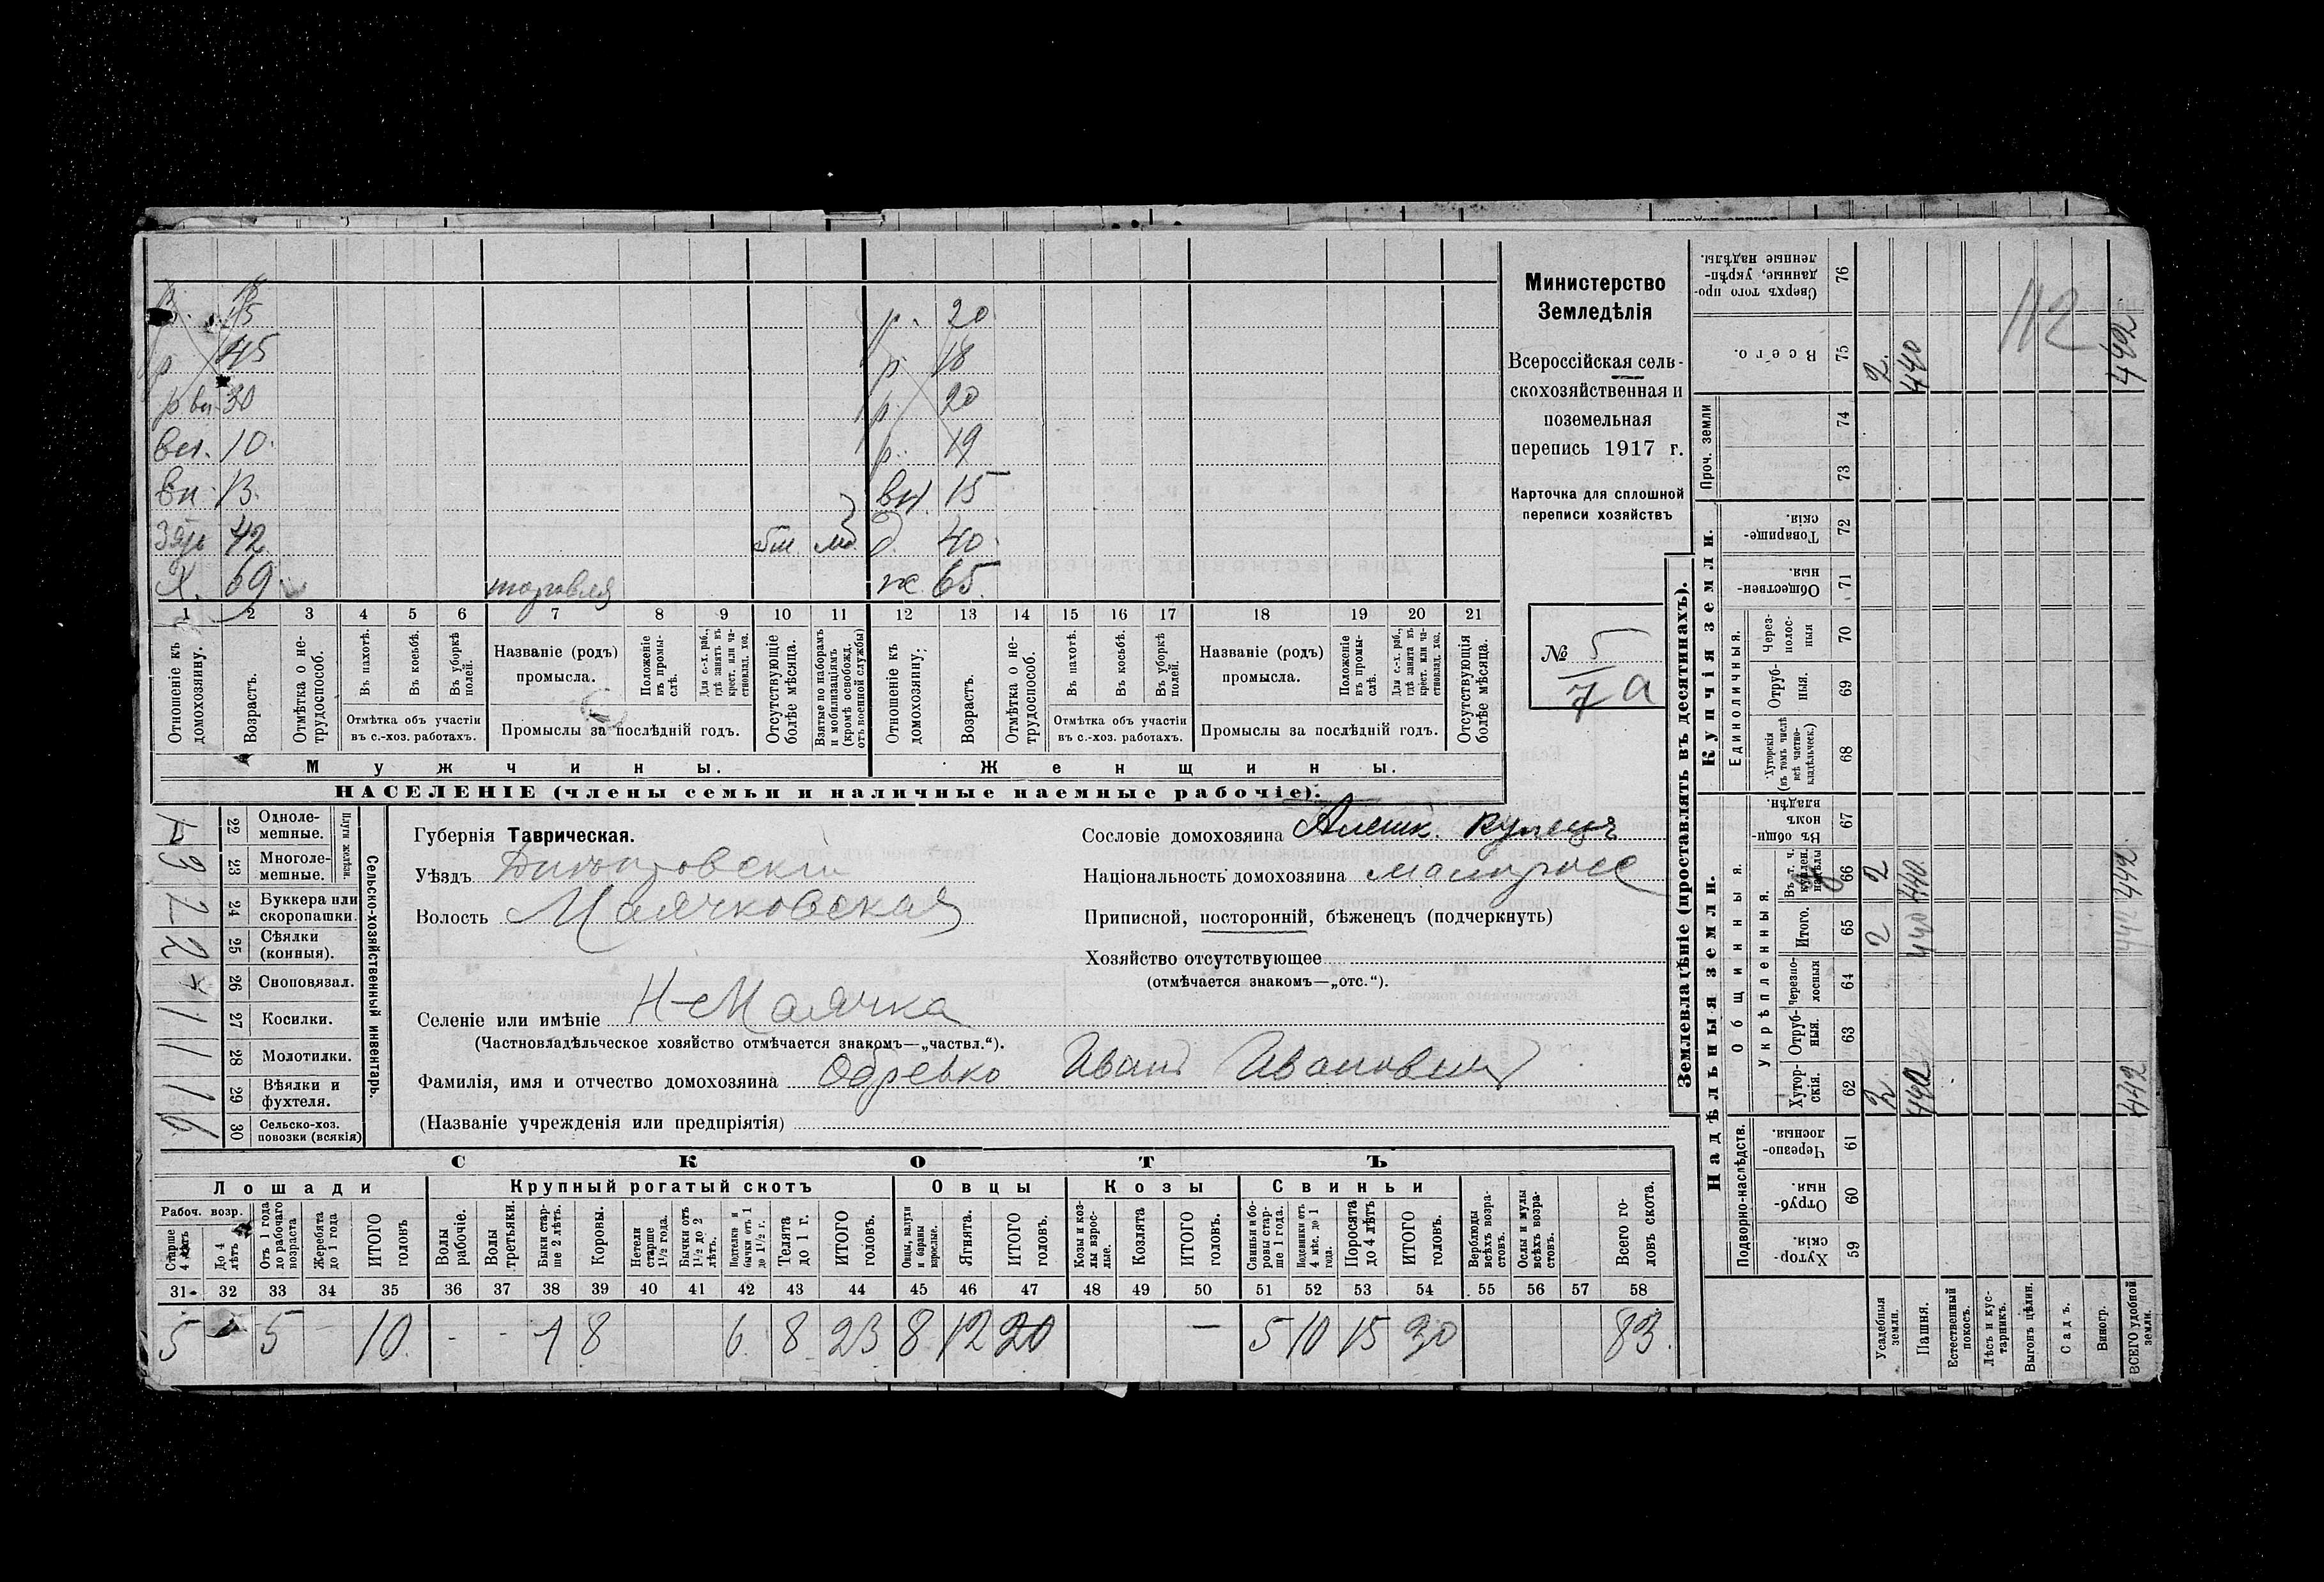 р. 15 р. 20
р 45 р. 18
р вн 30 р. 20
вн. 10. р. 19
вн. 13. вн. 15
зять 42 д. 40.
Х. 69 торговля ж 65.
1 2 3 4 5 6 7 8 9 10 11 12 13 14 15 16 17 18 19 20 21
Отношеніе къ домохозяину.
Возрастъ.
Отмѣтка о не-трудоспособ.
Въ пахотѣ.
Въ косьбѣ.
Въ уборкѣ полей.
Отмѣтка объ участіи
въ с.-хоз. работахъ.
Названіе (родъ)
промысла.
Положеніе въ промы-слѣ.
Для с.-х. раб., гдѣ занятъ въ крест. или ча-стновлад. хоз.
Промыслы за послѣдній годъ.
Отсутствующіе болѣе мѣсяца.
Взятые по наборамъ и мобилизаціямъ (кромѣ освобожд. отъ военной службы)
Отношеніе къ домохозяину.
Возрастъ.
Отмѣтка о не-трудоспособ.
Въ пахотѣ.
Въ косьбѣ.
Въ уборкѣ полей.
Отмѣтка объ участіи
въ с.-хоз. работахъ.
Названіе (родъ)
промысла.
Положеніе въ промы-слѣ.
Для с.-х. раб., гдѣ занята въ крест. или ча-стновлад. хоз.
Промыслы за послѣдній годъ.
Отсутствующія болѣе мѣсяца.
Мужчины. Женщины.
НАСЕЛЕНІЕ (члены семьи и наличные наемные рабочіе).
Министерство
Земледѣлія
Всероссійская сель-
скохозяйственная и
поземельная
перепись 1917 г.
Карточка для сплошной
переписи хозяйствъ
№ 5
7 а
Сельско-хозяйственный инвентарь.
Плуги желѣзн.
22 Одноле-мешные.
3 23 Многоле-мешные.
2 24 Буккера или скоропашки.
2 25 Сѣялки (конныя).
26 Сноповязал.
1 27 Косилки.
1 28 Молотилки.
1 29 Вѣялки и фухтеля.
6 30 Сельско-хоз. повозки (всякія)
Губернія Таврическая.
Уѣздъ Днѣпровскій
Волость Маячковская
Сословіе домохозяина Алешк. купецъ
Національность домохозяина малоросс
Приписной, посторонній, бѣженецъ (подчеркнуть)
Хозяйство отсутствующее
(отмѣчается знакомъ—„отс.“).
Селеніе или имѣніе Н-Маячка
(Частновладѣльческое хозяйство отмѣчается знакомъ—„частвл.“).
Фамилія, имя и отчество домохозяина Обревко Иванъ Ивановичъ
(Названіе учрежденія или предпріятія)
СКОТЪ
Лошади Крупный рогатый скотъ Овцы Козы Свиньи
Рабоч. возр.
Старше 4 лѣтъ
До 4 лѣтъ
Отъ 1 года до рабочаго возраста
Жеребята до 1 года
ИТОГО головъ
Волы рабочіе.
Волы третьяки.
Быки стар-ше 2 лѣтъ.
Коровы.
Нетели старше 1½ года.
Бычки отъ 1½ до 2 лѣтъ.
Подтелки и бычки отъ 1 до 1½ г.
Телята до 1 г.
ИТОГО головъ.
Овцы, валухи и бараны взрослые.
Ягнята.
ИТОГО головъ.
Козы и коз-лы взрос-лые.
Козлята
ИТОГО головъ.
Свиньи и бо-ровы стар-ше 1 года.
Подсвинки отъ 4 мѣс. до 1 года.
Поросята до 4 лѣтъ
ИТОГО головъ.
Верблюды всѣхъ возра-стовъ.
Ослы и мулы всѣхъ возра-стовъ.
Всего го-ловъ скота.
31 32 33 34 35 36 37 38 39 40 41 42 43 44 45 46 47 48 49 50 51 52 53 54 55 56 57 58
5 5 - 10 - - 1 8 6 8 23 8 12 20 — 5 10 15 30 83.
Землевладѣніе (проставлять въ десятинахъ).
Купчія земли.
Надѣльныя земли.
Проч. земли
Единоличныя.
Общинныя.
Укрѣпленныя.
Подворно-наслѣдств.
Сверхъ того про-данные, укрѣп-ленные надѣлы. 76
Всего. 75 2. 440 442
74
73
Товарище-скія. 72
Обществен-ныя 71
Через-полос-ныя 70
Отруб-ныя. 69
Хуторскія (въ томъ числѣ всѣ частно-владѣльческ.) 68
Въ общин-номъ владѣн. 67
Въ т. ч. куплен. надѣлы 66 2 440 442
Итого. 65 2 440 442
Черезпо-лосныя 64
Отруб-ныя. 63
Хутор-скія. 62 2 440 442
Черезпо-лосныя. 61
Отруб-ныя. 60
Хутор-скія. 59
Усадебныя земли.
Пашня.
Естественный покосъ.
Лѣсъ и кус-тарникъ.
Выгонъ цѣлин.
Садъ.
Виногр.
ВСЕГО удобной земли.
112